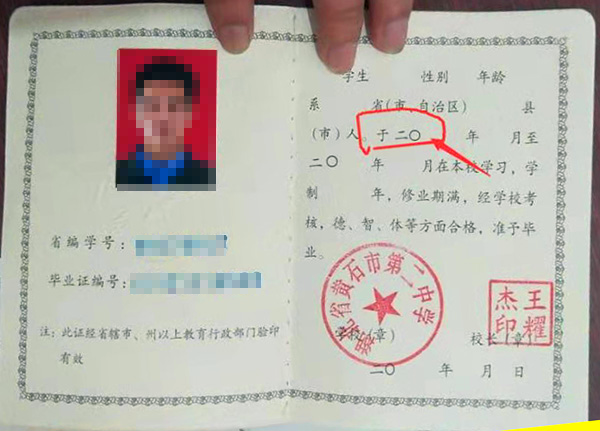 省编学号:
毕业证编号:
注: 此证经省辖市、州以上教育行政部门验印
有效
学生 性别 年龄
系 省(市、自治区) 县
(市)人、于二〇 年 月至
二〇 年 月在本校学习,学
制 年,修业期满,经学校考
核,德、智、体等方面合格,准予毕
业。
湖北省黄石市第二中学
学校(章) 校长(章)
王耀
杰印
二〇 年 月 日